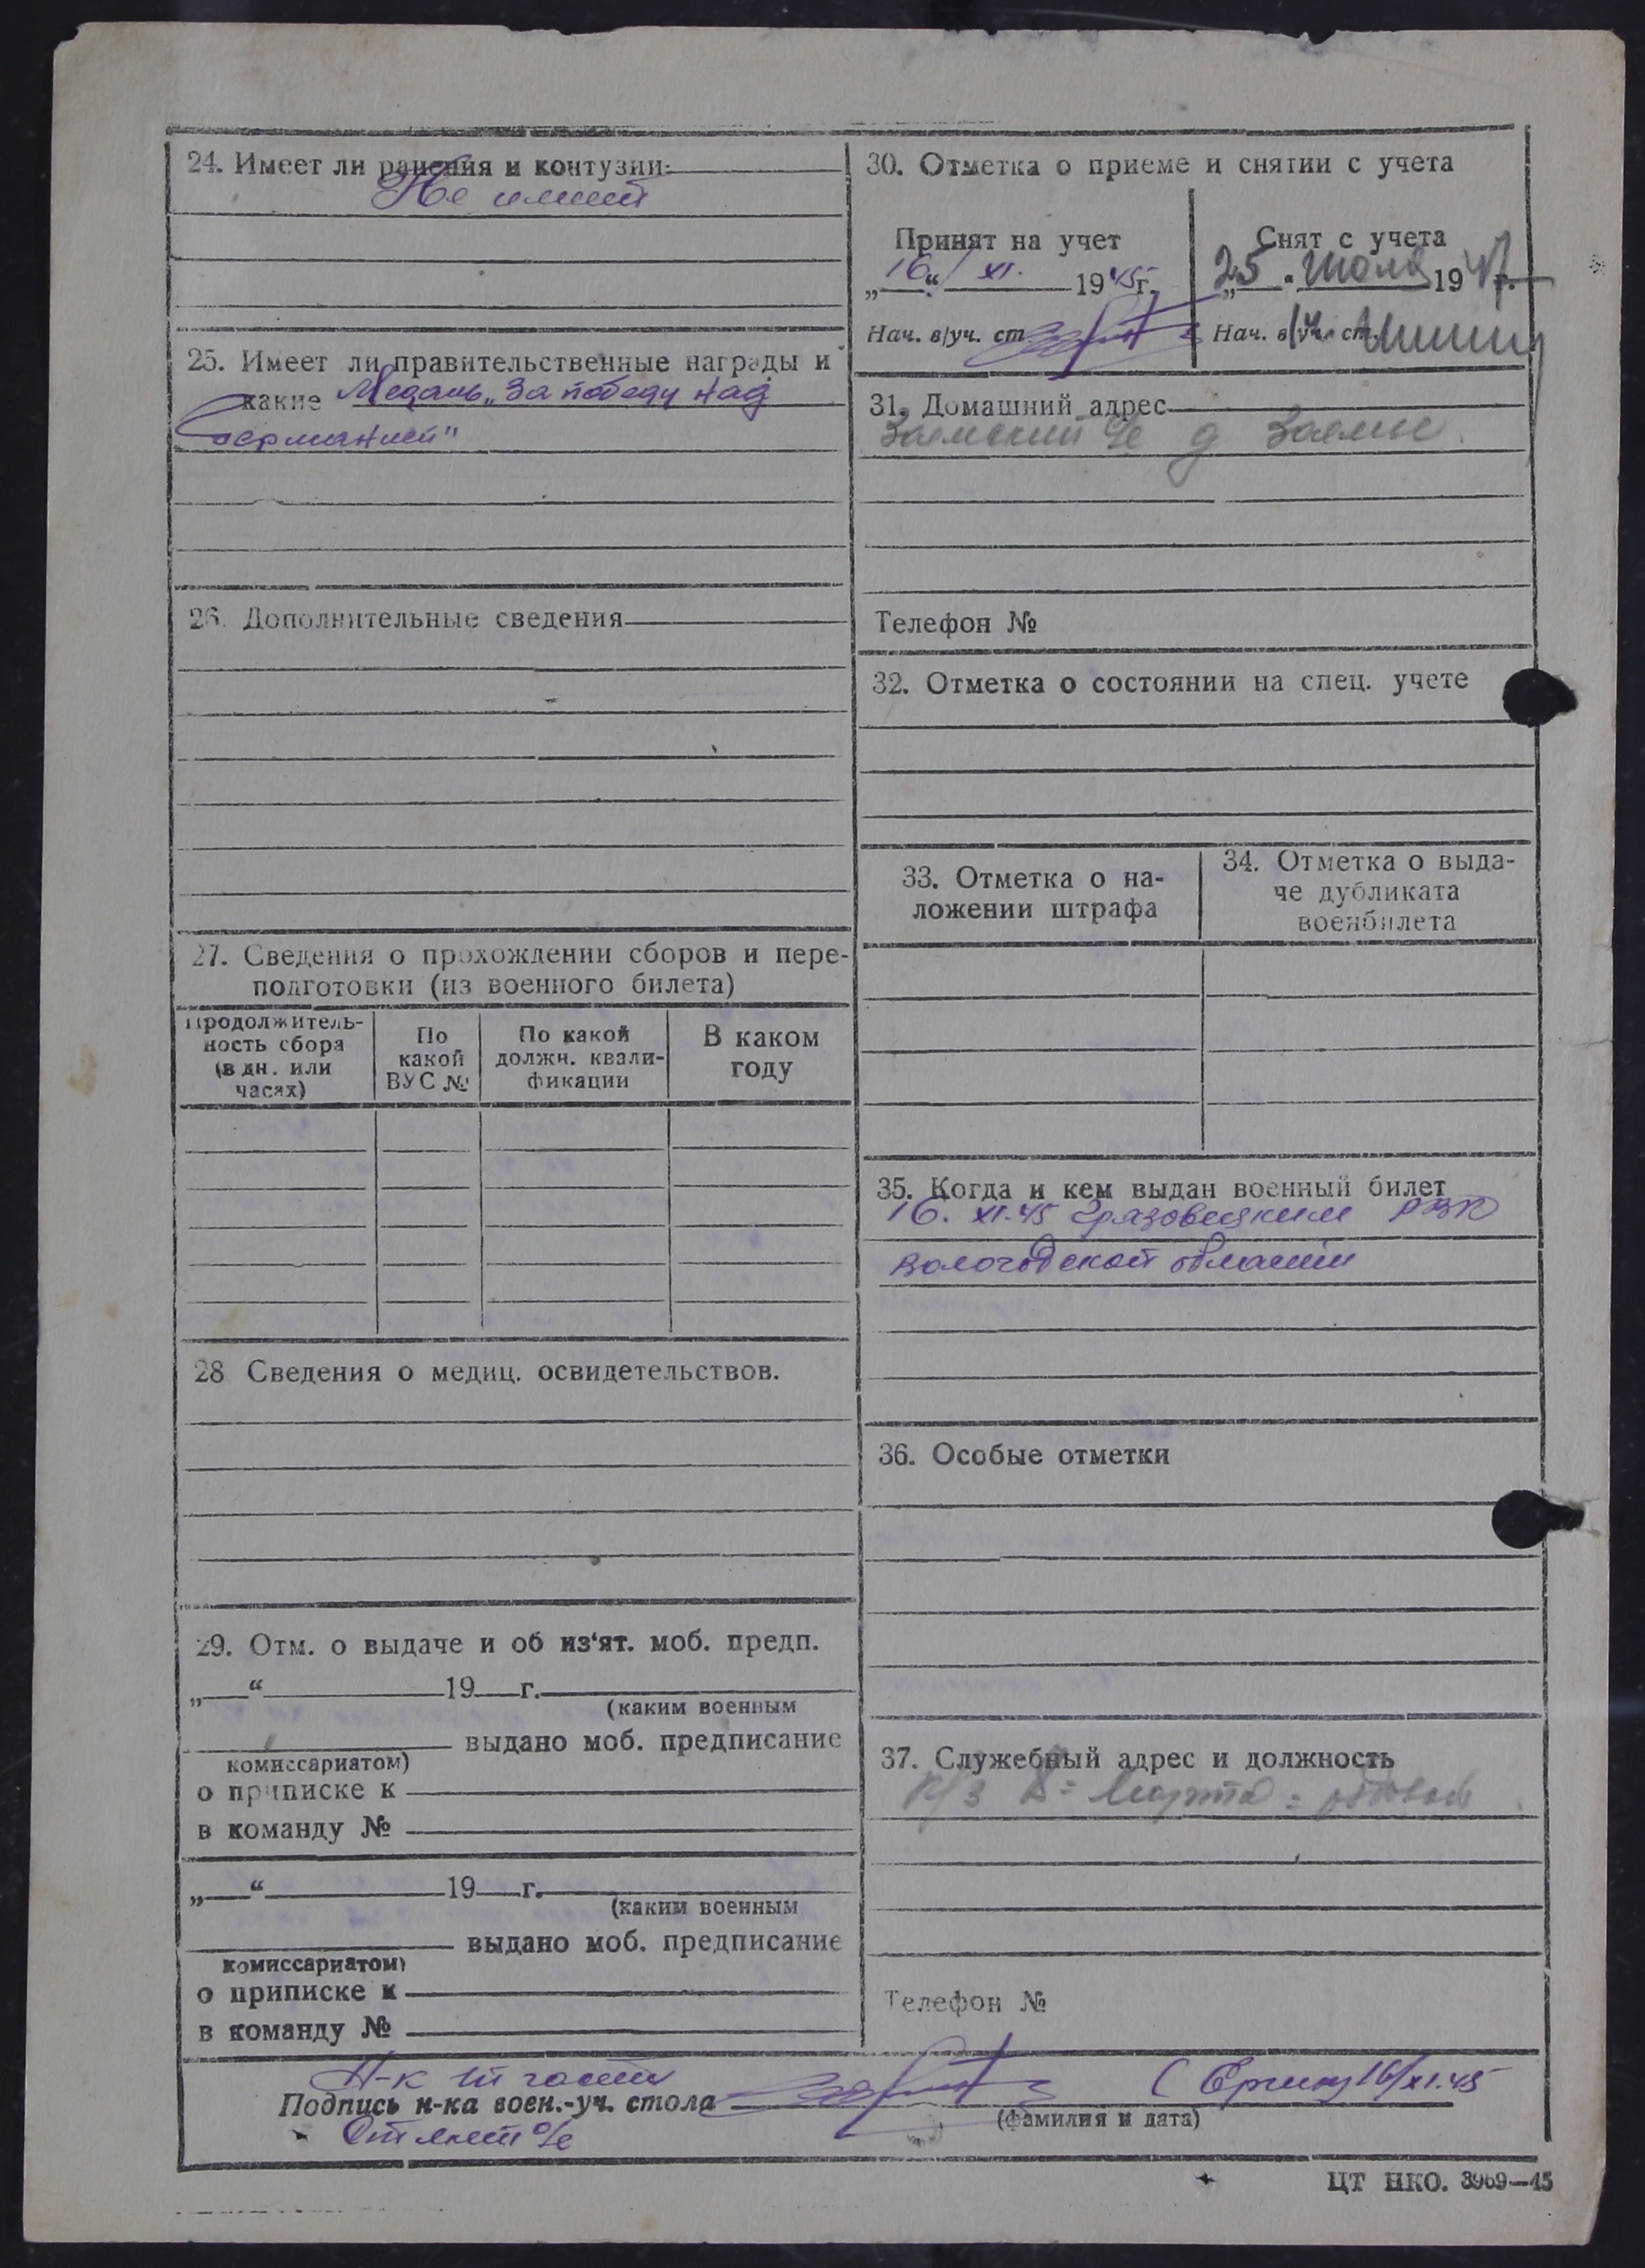 24. Имеет ли ранения и контузии:
Не имеет
25. Имеет ли правительственные награды и
какие Медаль „За победу над
Германией"
26. Дополнительные сведения
27. Сведения о прохождении сборов и пере-
подготовки (из военного билета)
Продолжитель-
ность сбора
(в дн. или
часах)
По
какой
ВУС №
По какой
должн. квали-
фикации
В каком
году
28 Сведения о медиц. освидетельствов.
29. Отм. о выдаче и об из'ят. моб. предп.
„ “ 19 г.
(каким военным
выдано моб. предписание
комиссариатом)
о приписке к
в команду №
„ “ 19 г.
(каким военным
выдано моб. предписание
комиссариатом)
о приписке к
в команду №
30. Отметка о приеме и снятии с учета
Принят на учет
„16“ XI. 1945г.
Нач. в/уч. ст
Снят с учета
„25“ июля 1947г.
Нач. в/уч. ст.
31. Домашний адрес
Заемский д Заемье.
Телефон №
32. Отметка о состоянии на спец. учете
33. Отметка о на-
ложении штрафа
34. Отметка о выда-
че дубликата
военбилета
35. Когда и кем выдан военный билет
16. XI-45 Грязовецким РВК
Вологодской области
36. Особые отметки
37. Служебный адрес и должность
к/з 8= Марта =
Телефон №
Н-к III части
Подпись н-ка воен.-уч. стола 16/XI.45
(фамилия и дата)
ЦТ НКО. 3969—45